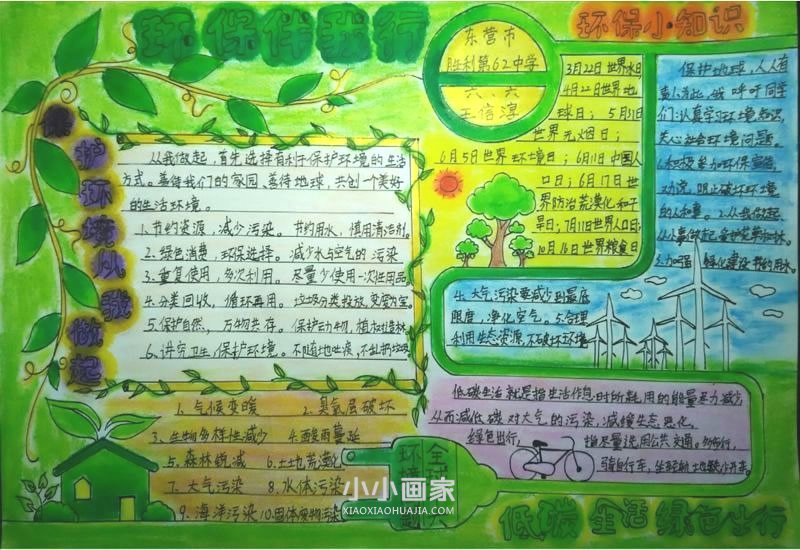 环保伴我行
环保小知识
保护环境从我做起
东营市
胜利第62中学
六、六
王信淳
从我做起,首先选择有利于保护环境的生活
方式。善待我们的家园、善待地球,共创一个美好
的生活环境。
1.节约资源,减少污染。节约用水,慎用清洁剂。
2.绿色消费,环保选择。减少水与空气的污染
3.重复使用,多次利用。尽量少使用一次性用品
4.分类回收,循环再用。垃圾分类投放,变废为宝。
5.保护自然,万物共存。保护动物,植树造林
6.讲究卫生,保护环境。不随地吐痰,不乱扔垃圾
3月22日世界水日
4月22日世界地
球日;5月31日
世界无烟日;
6月5日世界环境日;6月11日中国人
口日;6月17日世
界防治荒漠化和干
旱日;7月11日世界人口日;
10月16日世界粮食日
保护地球,人人有
责,为此,我呼吁同学
们:认真学习环境知识,
关心社会环境问题。
1.积极参加环保宣传
活动,阻止破坏环境
的人和事。2.从我做起
从小事做起,爱护花草树林。
3.加强绿化建设节约用水。
4.大气污染要减少到最底
限度,净化空气。5.合理
利用生态资源,不破坏环境
1、气候变暖 2、臭氧层破坏
3、生物多样性减少 4、酸雨蔓延
5、森林锐减 6、土地荒漠化
7、大气污染 8、水体污染
9、海洋污染 10、固体废物污染
全球
环境
低碳生活就是指生活作息时所耗用的能量尽力减少,
从而减低碳对大气的污染,减缓生态恶化,
绿色出行,指尽量选用公共交通。多步行,
骑自行车,坐轻轨地铁少开车。
低碳生活绿色出行
小小画家
XIAOXIAOHUAJIA.COM